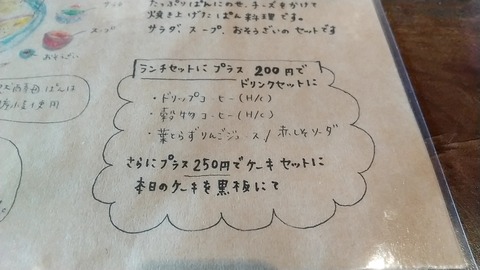 たっぷりぱんにのせ、チーズをかけて
焼き上げたぱん料理です。
サラダ、スープ、おそうざいのセットです
スープ
ランチセットに プラス 200円で
ドリンクセットに
・ドリップコーヒー(H/C)
・穀物コーヒー(H/C)
・葉とらずりんごジュース / 赤しそソーダ
さらにプラス 250円でケーキセットに
本日のケーキを黒板にて